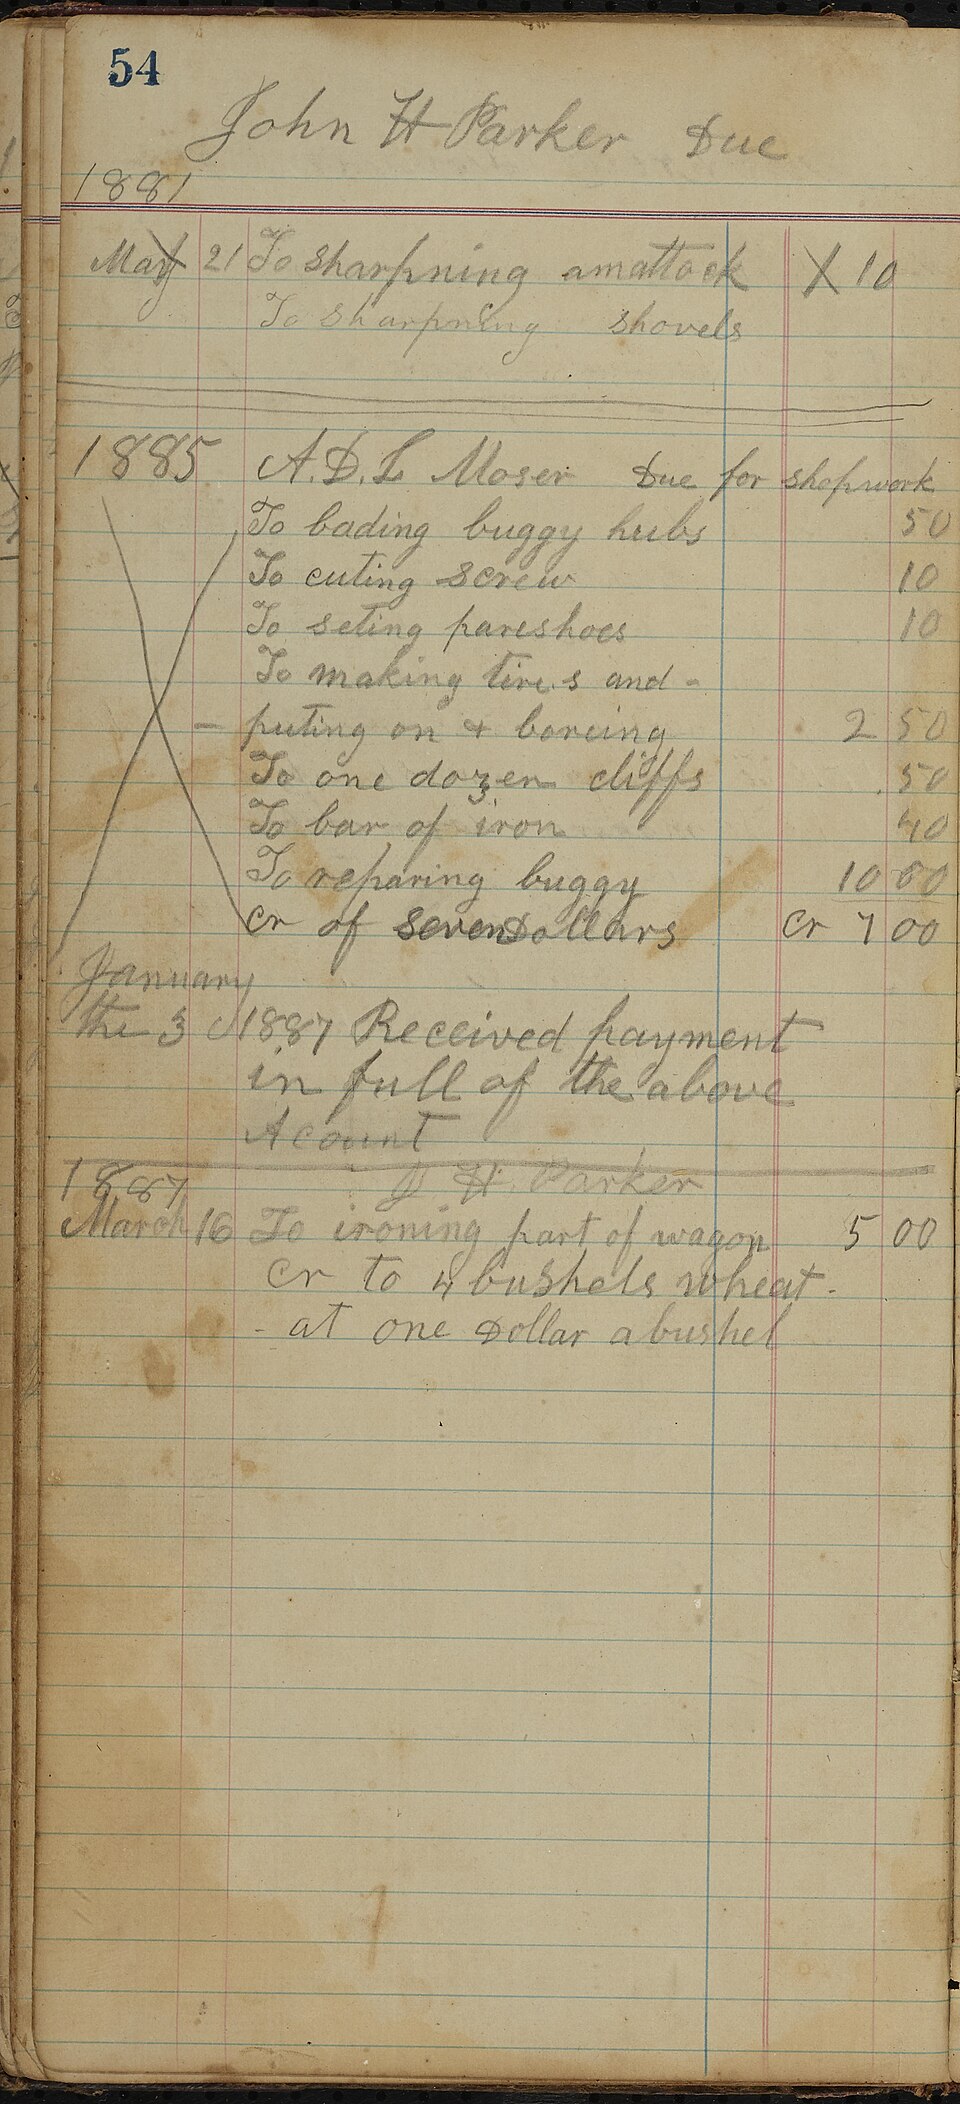 54
John H Parker Due
1881
May 21 To sharpning amattock X 10
To sharpning shovels
1885 A.D.L Moser Due for shopwork
To bading buggy hubs 50
To cuting screw 10
To seting pareshoes 10
To making tires and -
- puting on & boreing 2 50
To one dozen cliffs 50
To bar of iron 40
To reparing buggy 10 00
cr of seven Dollars Cr 7 00
January
the 3 1887 Received payment
in full of the above
Acount
1887 J H. Parker
March 16 To ironing part of wagon 5 00
Cr to 4 bushels wheat -
- at one Dollar abushel